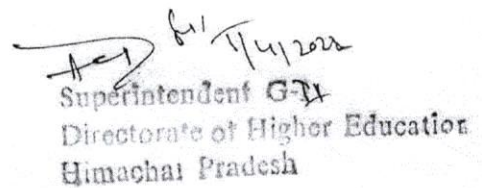 1/4/2022
Superintendent G-II
Directorate of Higher Education
Himachal Pradesh